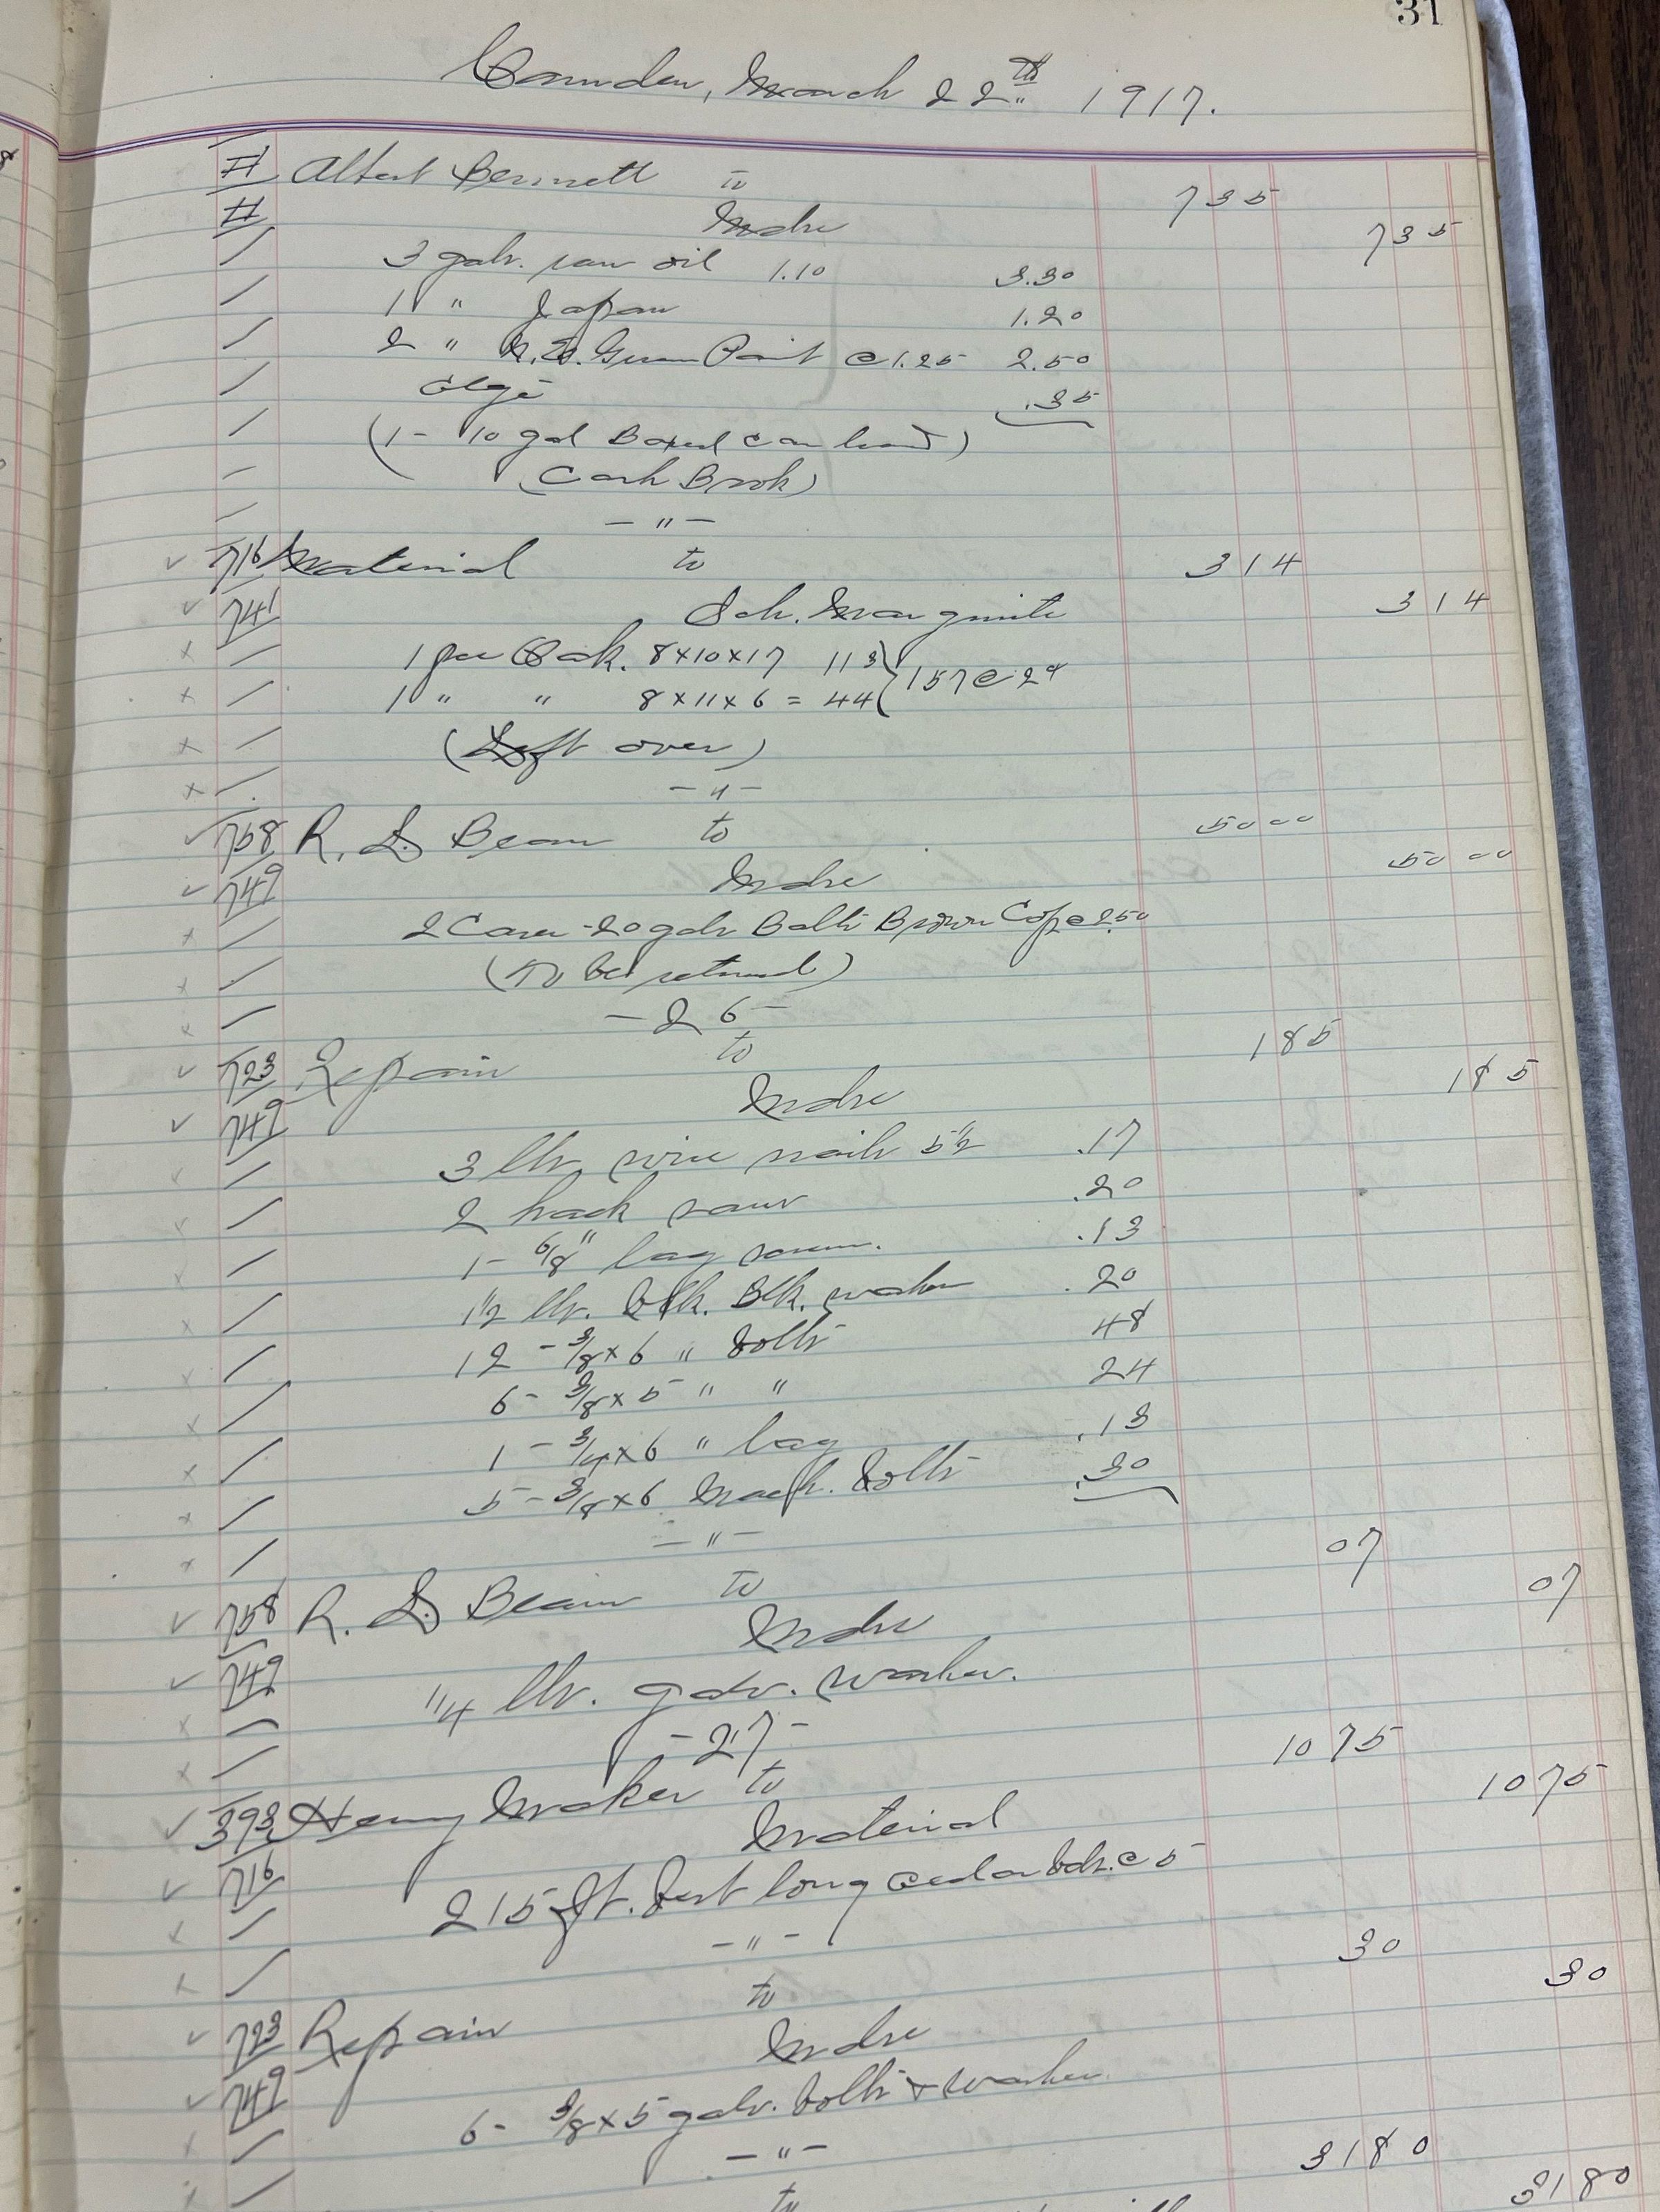 31
Camden, March 22th 1917.
# Albert Bennett to 7 35
# Mdse 7 35
3 gals. raw oil 1.10 3.30
1 " Japan 1.20
2 " Green Paint @ 1.25 2.50
.35
(1 - 10 gal Boxed can loan'd)
(Cash Book)
- " -
716 Material to 3 14
741 Sch. Marguerite 3 14
1 pce Oak. 8x10x17 113 } 157 @ 2¢
1 " " 8x11x6 = 44
(Left over)
- " -
758 R. L. Bean to 50 00
749 Mdse 50 00
2 Cases - 20 gals Balti Brown Cop @ 2.50
(To be returned)
- 26 -
723 Repair to 1 85
749 Mdse 1 85
3 lbs. wire nails 5 1/2 .17
2 hack saws .20
1 - 6/8" lag screw. .13
1 1/2 lbs. blk. washers .20
12 - 3/8 x 6 " bolts 48
6 - 3/8 x 5 " " 24
1 - 3/4 x 6 " lag .13
5 - 3/8 x 6 Mach. bolts .30
- " -
758 R. L. Bean to 07
749 Mdse 07
1/4 lbs. galv. washers.
- 27 -
393 Henry Maker to 10 75
716 Material 10 75
215 ft. best long cedar bds. @ 5
- " -
723 Repair to 30
749 Mdse 30
6 - 3/8 x 5 galv. bolts & washers
- " -
to 31 80
31 80